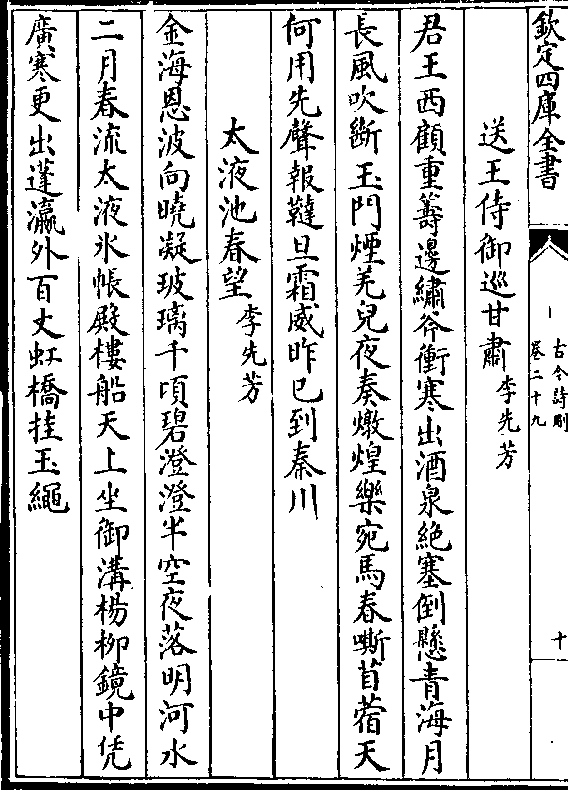 欽定四庫全書
古今詩刪
卷二十九
十
送王侍御巡甘肅 李先芳
君王西顧重籌邊繡斧衝寒出酒泉絶塞倒懸青海月
長風吹斷玉門煙羌兒夜奏燉煌樂宛馬春嘶苜蓿天
何用先聲報韃旦霜威昨已到秦川
太液池春望 李先芳
金海恩波向曉凝玻璃千頃碧澄澄半空夜落明河水
二月春流太液氷帳殿樓船天上坐御溝楊柳鏡中凭
廣寒更出蓬瀛外百丈虹橋挂玉繩